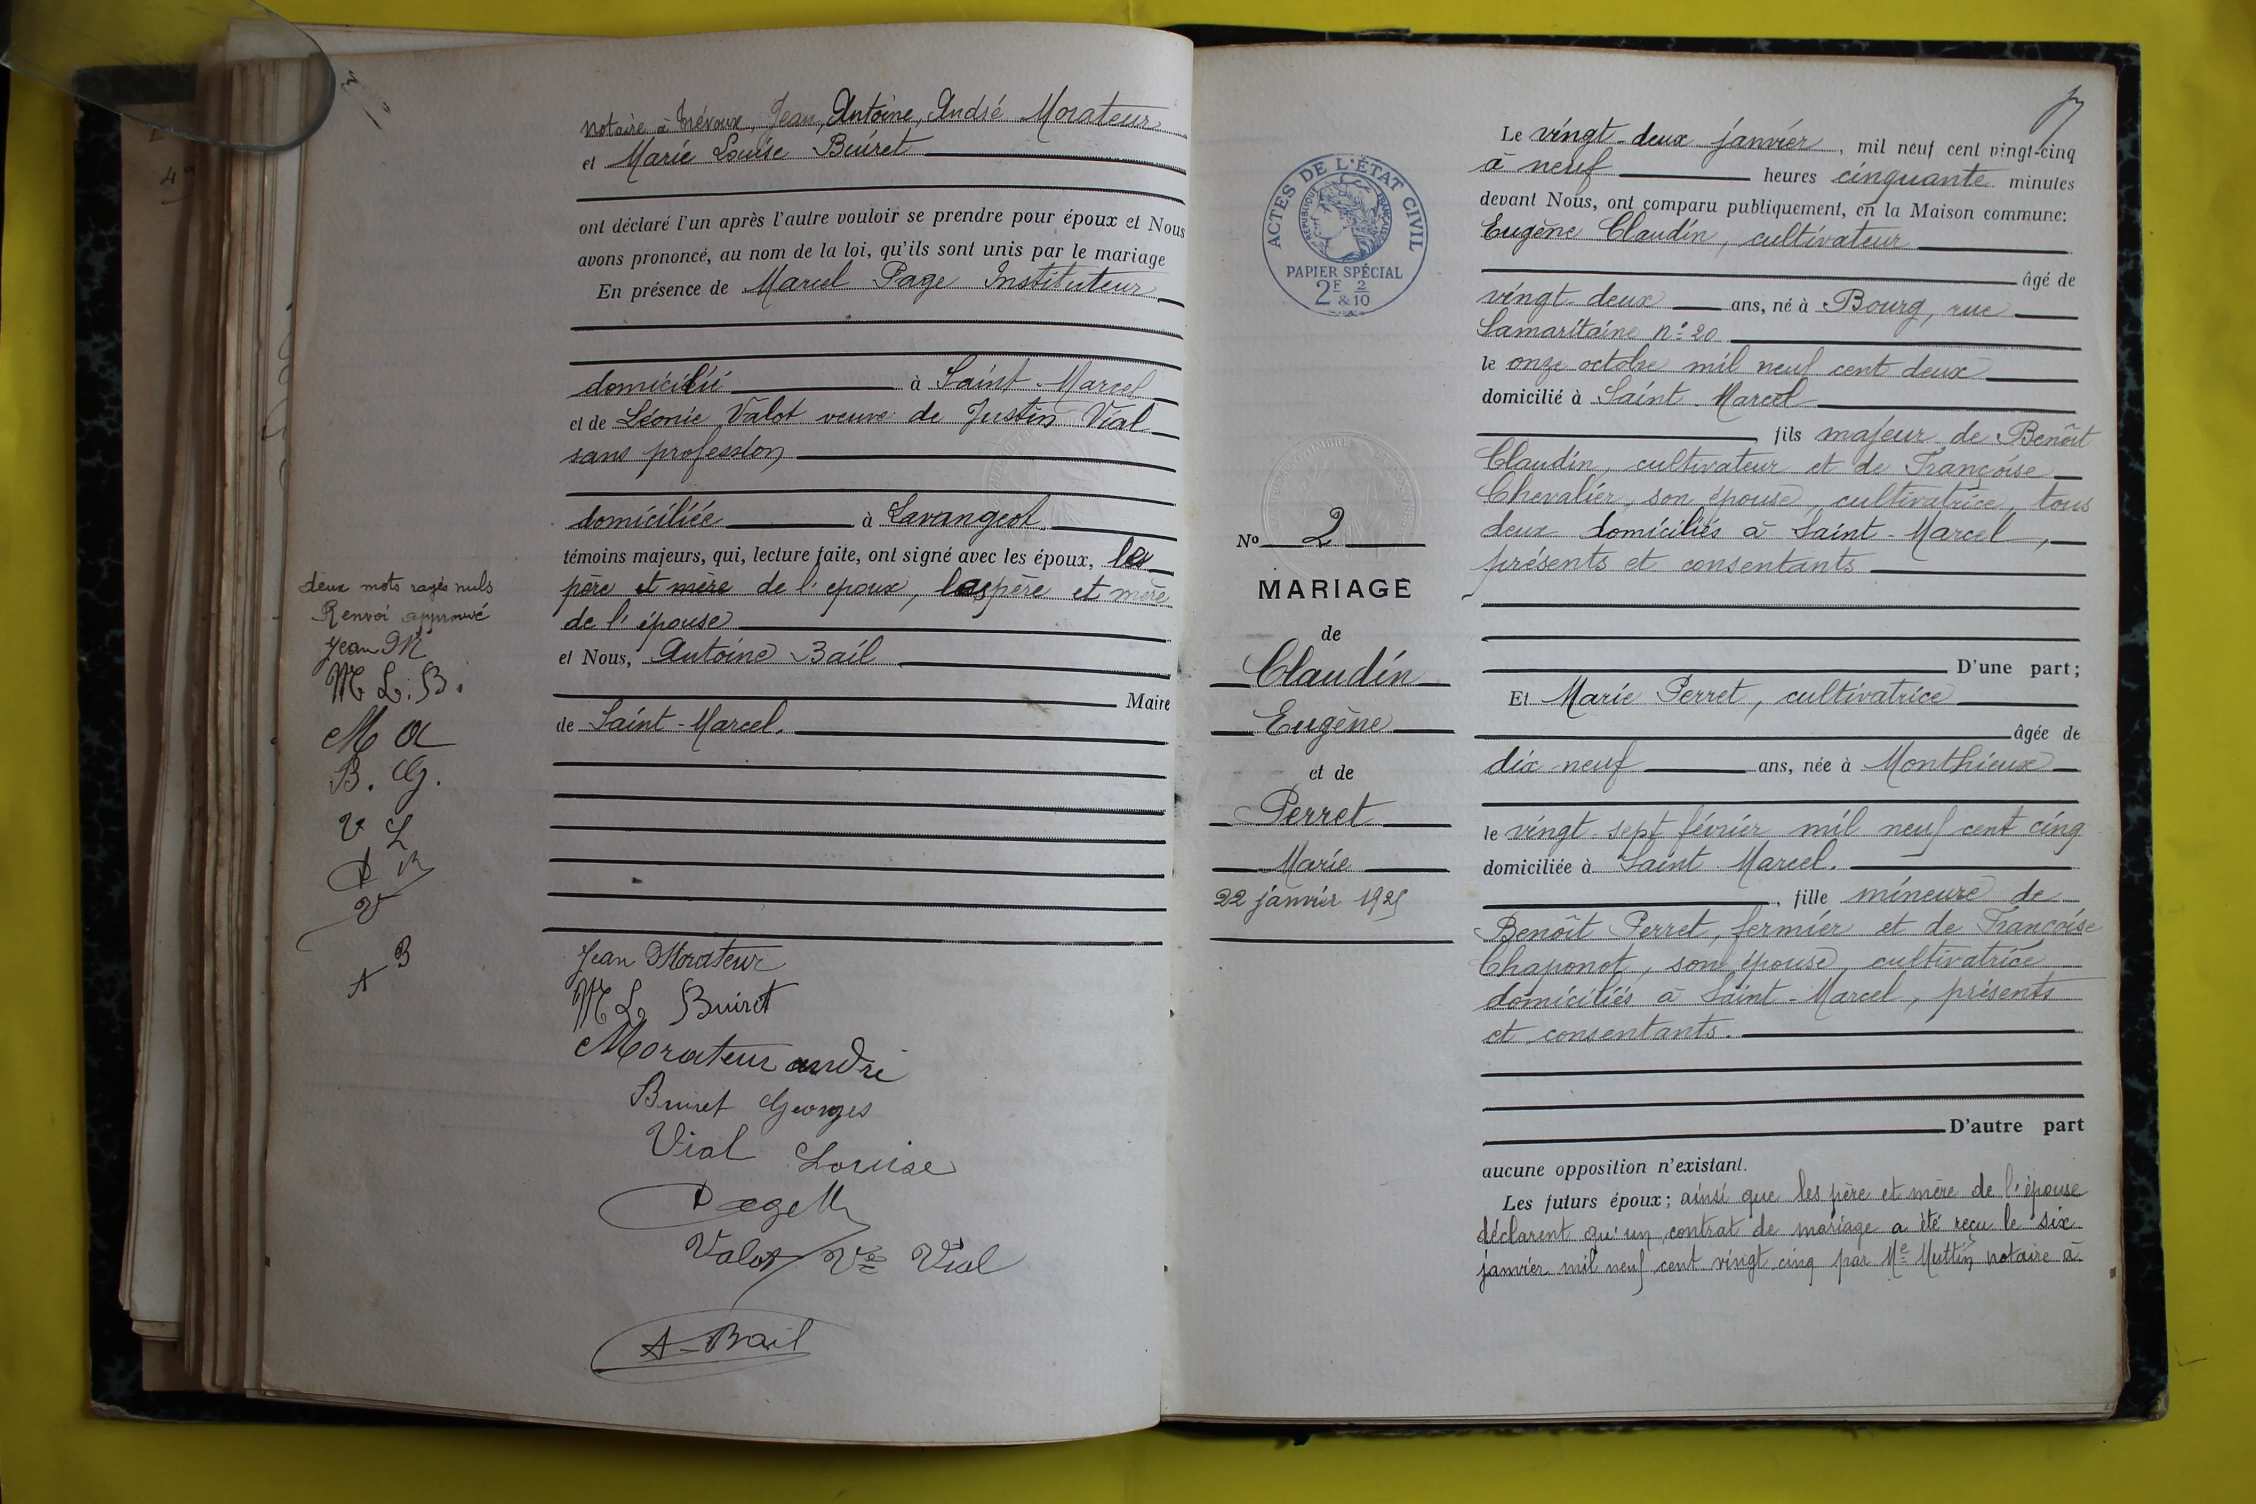 notaire à Trévoux, Jean, Antoine, André Morateur
et Marie Louise Buiret
ont déclaré l'un après l'autre vouloir se prendre pour époux et Nous
avons prononcé, au nom de la loi, qu'ils sont unis par le mariage
En présence de Marcel Page Instituteur
domicilié à Saint-Marcel
et de Léonie Valot veuve de Justin Vial
sans profession
domiciliée à Lavangeot
témoins majeurs, qui, lecture faite, ont signé avec les époux, les
père et mère de l'époux, les père et mère
de l'épouse
et Nous, Antoine Bail
Maire
de Saint-Marcel.
deux mots rayés nuls
Renvoi approuvé
Jean M
M L. B.
M A
B. G.
V L
P M
V
A B
Jean Morateur
M L Buiret
Morateur andré
Buiret Georges
Vial Louise
Page M
Valot Vve Vial
A. Bail
ACTES DE L'ÉTAT CIVIL
RÉPUBLIQUE FRANÇAISE
PAPIER SPÉCIAL
2F & 2/10
No 2
MARIAGE
de
Claudin
Eugène
et de
Perret
Marie
22 janvier 1925
Le vingt-deux janvier, mil neuf cent vingt-cinq
à neuf heures cinquante minutes
devant Nous, ont comparu publiquement, en la Maison commune:
Eugène Claudin, cultivateur
âgé de
vingt-deux ans, né à Bourg, rue
Samaritaine n° 20
le onze octobre mil neuf cent deux
domicilié à Saint-Marcel
, fils majeur de Benoît
Claudin, cultivateur et de Françoise
Chevalier, son épouse, cultivatrice, tous
deux domiciliés à Saint-Marcel,
présents et consentants
D'une part;
Et Marie Perret, cultivatrice
âgée de
dix-neuf ans, née à Monthieux
le vingt-sept février mil neuf cent cinq
domiciliée à Saint-Marcel.
, fille mineure de
Benoît Perret, fermier et de Françoise
Chaponot, son épouse, cultivatrice
domiciliés à Saint-Marcel, présents
et consentants.
D'autre part
aucune opposition n'existant.
Les futurs époux; ainsi que les père et mère de l'épouse
déclarent qu'un contrat de mariage a été reçu le six
janvier mil neuf cent vingt cinq par Me Muttin notaire à